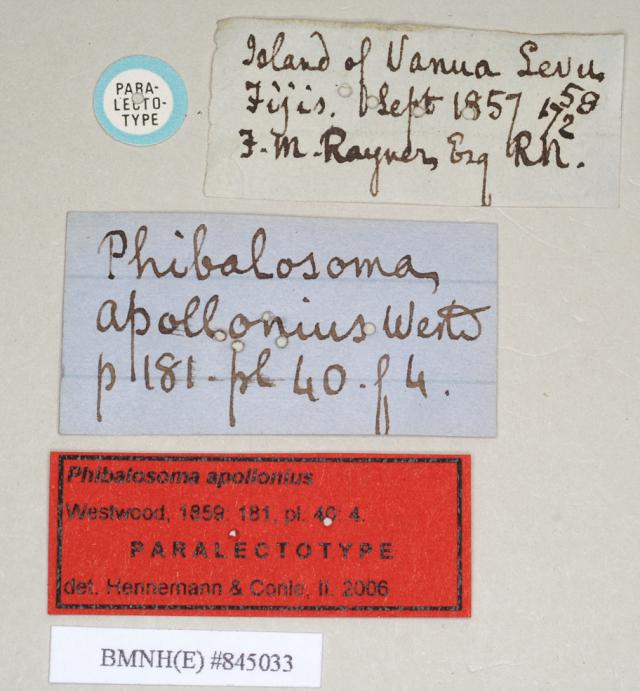 PARA-
LECTO-
TYPE
Island of Vanua Levu,
Fijis. Sept 1857 58
17/2
F. M. Rayner, Esq RN.
Phibalosoma,
apollonius Westd
p 181 - pl 40 - f 4.
Phibalosoma apollonius
Westwood, 1859: 181, pl. 40: 4.
PARALECTOTYPE
det. Hennemann & Conle, II. 2006
BMNH(E) #845033